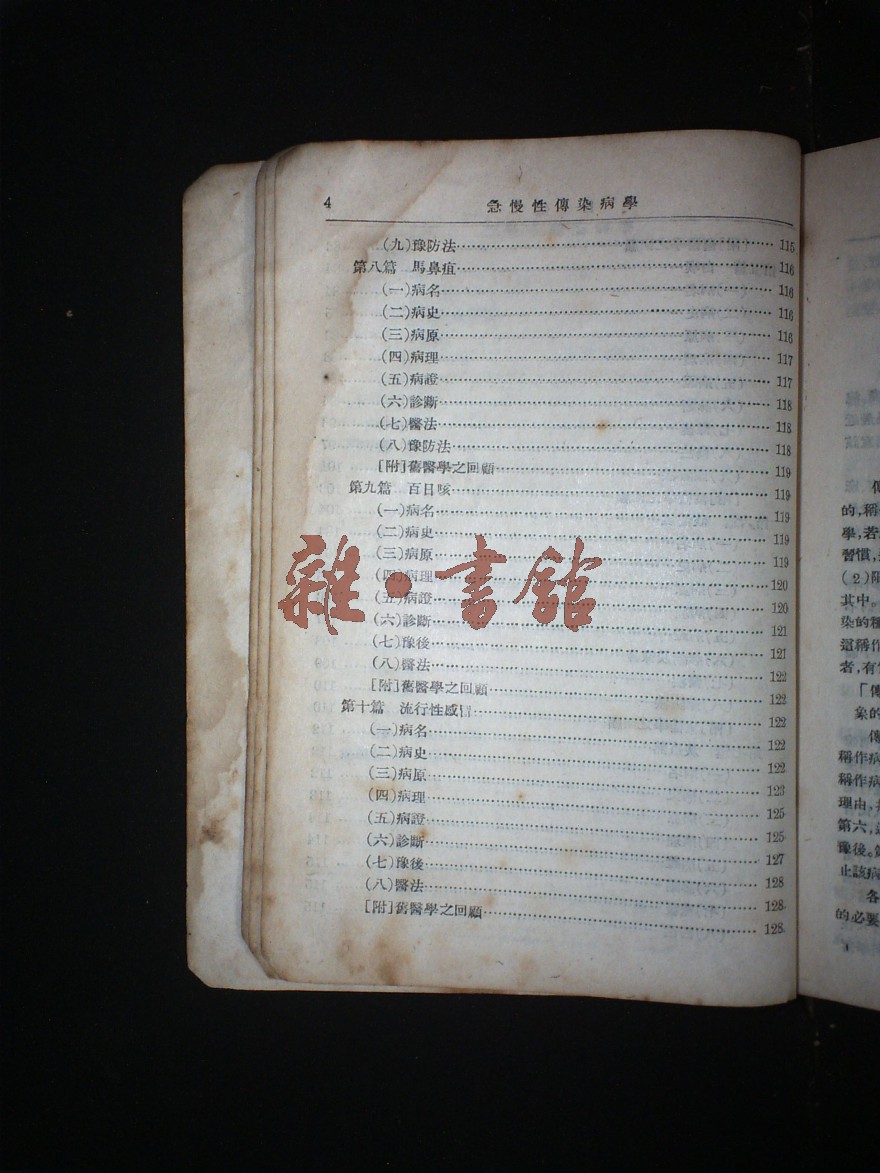 4 急慢性傳染病學
(九)豫防法 115
第八篇 馬鼻疽 116
(一)病名 116
(二)病史 116
(三)病原 116
(四)病理 117
(五)病證 117
(六)診斷 118
(七)醫法 118
(八)豫防法 118
[附]舊醫學之回顧 119
第九篇 百日咳 119
(一)病名 119
(二)病史 119
(三)病原 119
(四)病理 120
(五)病證 120
(六)診斷 121
(七)豫後 121
(八)醫法 122
[附]舊醫學之回顧 122
第十篇 流行性感冒 122
(一)病名 122
(二)病史 122
(三)病原 123
(四)病理 125
(五)病證 125
(六)診斷 127
(七)豫後 128
(八)醫法 128
[附]舊醫學之回顧 128
雜·書館
傳
的,稱
學,若
習慣,
(2)限
其中。
染的種
還稱作
者,有
「傳
象的
傳
稱作病
稱作病
理由,
第六,
豫後。
止該病
各
的必要